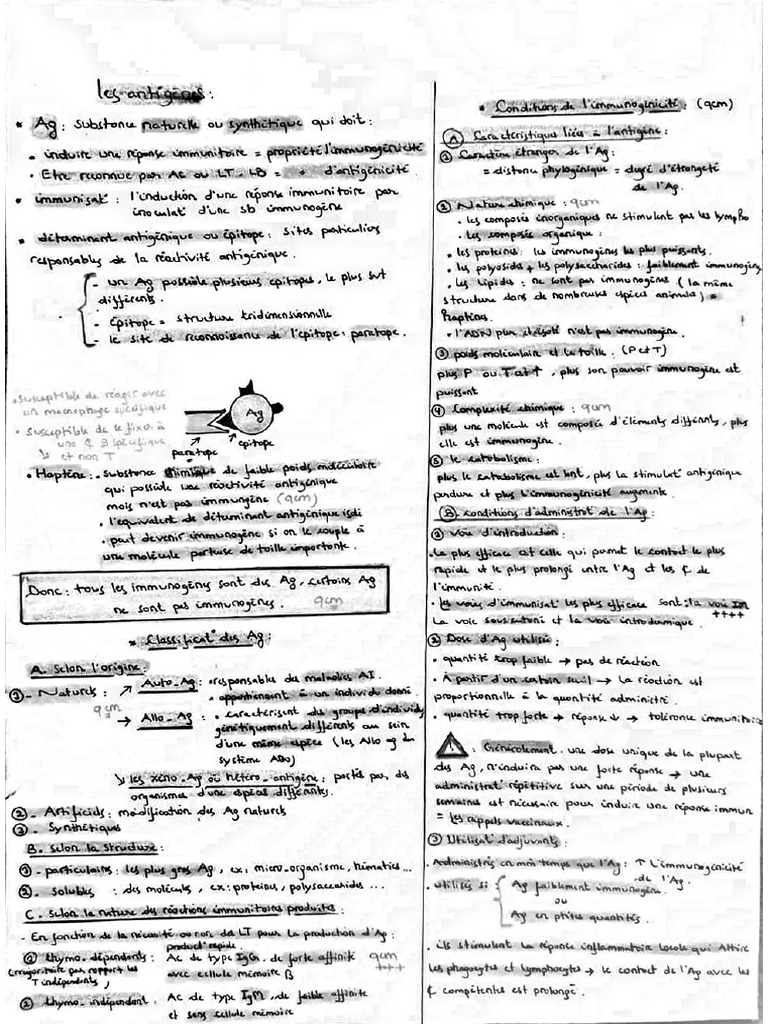 les antigènes :
* Ag : substance naturelle ou synthétique qui doit :
• induire une réponse immunitaire = propriété d'immunogénicité
• Etre reconnue par Ac ou LT - LB = " d'antigénicité
* immunisat° : l'induction d'une réponse immunitaire par
inoculat° d'une sb immunogène
* déterminant antigénique ou épitope : sites particuliers
responsables de la réactivité antigénique.
- un Ag possède plusieurs épitopes, le plus svt
différents.
- épitope = structure tridimensionnelle
- le site de reconnaissance de l'épitope : paratope.
• Susceptible de réagir avec
un macrophage spécifique
• Susceptible de se fixer à
une ¢ B spécifique
↳ et non T
Ag
paratope
épitope
• Haptène : • Substance chimique de faible poids moléculaire
qui possède une réactivité antigénique
mais n'est pas immunogène (qcm)
• l'équivalent de déterminant antigénique isolé
• peut devenir immunogène si on le couple à
une molécule porteuse de taille importante.
Donc : tous les immunogènes sont des Ag, certains Ag
ne sont pas immunogènes. qcm
* Classificat° des Ag :
A. Selon l'origine :
① - Naturels : ↗ Auto-Ag : • responsables de maladies AI.
• appartiennent à un individu donné.
qcm
→ Allo-Ag : • caractérisent des groupes d'individus
génétiquement différents au sein
d'une même espèce (les Allo ag du
système ABO)
↘ les xéno-Ag ou hétéro-antigène : portés par des
organismes d'une espèces différentes.
② - Artificiels : modification des Ag naturels
③ - Synthétiques
B. Selon la structure :
① - particulaires : les plus gros Ag, ex : micro-organisme, hématies ...
② - Solubles : des molécules, ex : proteines, polysaccarides ...
C. Selon la nature des réactions immunitaires produites :
- En fonction de la nécessité ou non des LT pour la production d'Ag :
product° rapide
① thymo-dépendants : Ac de type IgG, de forte affinité qcm
(majoritaire par rapport les avec cellule mémoire B ++++
T indépendants)
② thymo-indépendant : Ac de type IgM, de faible affinité
et sans cellule mémoire
* Conditions de l'immunogénicité : (qcm)
Ⓐ Caractéristiques liées à l'antigène :
① Caractère étranger de l'Ag :
= distance phylogénique = degré d'étrangeté
de l'Ag.
② Nature chimique : qcm
• les composés inorganiques ne stimulent pas les lympho
• les composés organique :
• les proteines : les immunogènes les plus puissants.
• les polyosides + les polysaccharides : faiblement immunogènes
• les lipides : ne sont pas immunogènes (la même
structure dans de nombreuses espèces animales) =
haptènes.
• l'ADN pur et isolé n'est pas immunogène.
③ poids moléculaire et la taille : (P et T)
plus P ou T est ↑, plus son pouvoir immunogène est
puissant
④ Complexité chimique : qcm
plus une molécule est composée d'éléments différents, plus
elle est immunogène.
⑤ le catabolisme :
plus le catabolisme est lent, plus la stimulat° antigénique
perdure et plus l'immunogénicité augmente.
Ⓑ conditions d'administrat° de l'Ag :
① Voie d'introduction :
• La plus efficace est celle qui permet le contact le plus
rapide et le plus prolongé entre l'Ag et les ¢ de
l'immunité.
• les voies d'immunisat° les plus efficace sont : la voie IM
++++
La voie sous cutané et la voie intradermique.
② Dose d'Ag utilisée :
• quantité trop faible → pas de réaction
• À partir d'un certain seuil → la réaction est
proportionnelle à la quantité administré.
• quantité trop forte → réponse ↓ → tolérance immunitaire
⚠ : Généralement, une dose unique de la plupart
des Ag, n'induira pas une forte réponse → une
administrat° répétitive sur une période de plusieurs
semaines est nécessaire pour induire une réponse immun
= les rappels vaccinaux.
③ Utilisat° d'adjuvants :
• Administrés en même temps que l'Ag : ↑ l'immunogénicité
de l'Ag.
• utilisés si Ag faiblement immunogène.
ou
Ag en ptites quantités.
• ils stimulent la réponse inflammatoire locale qui Attire
les phagocytes et lymphocytes → le contact de l'Ag avec les
¢ compétentes est prolongé.